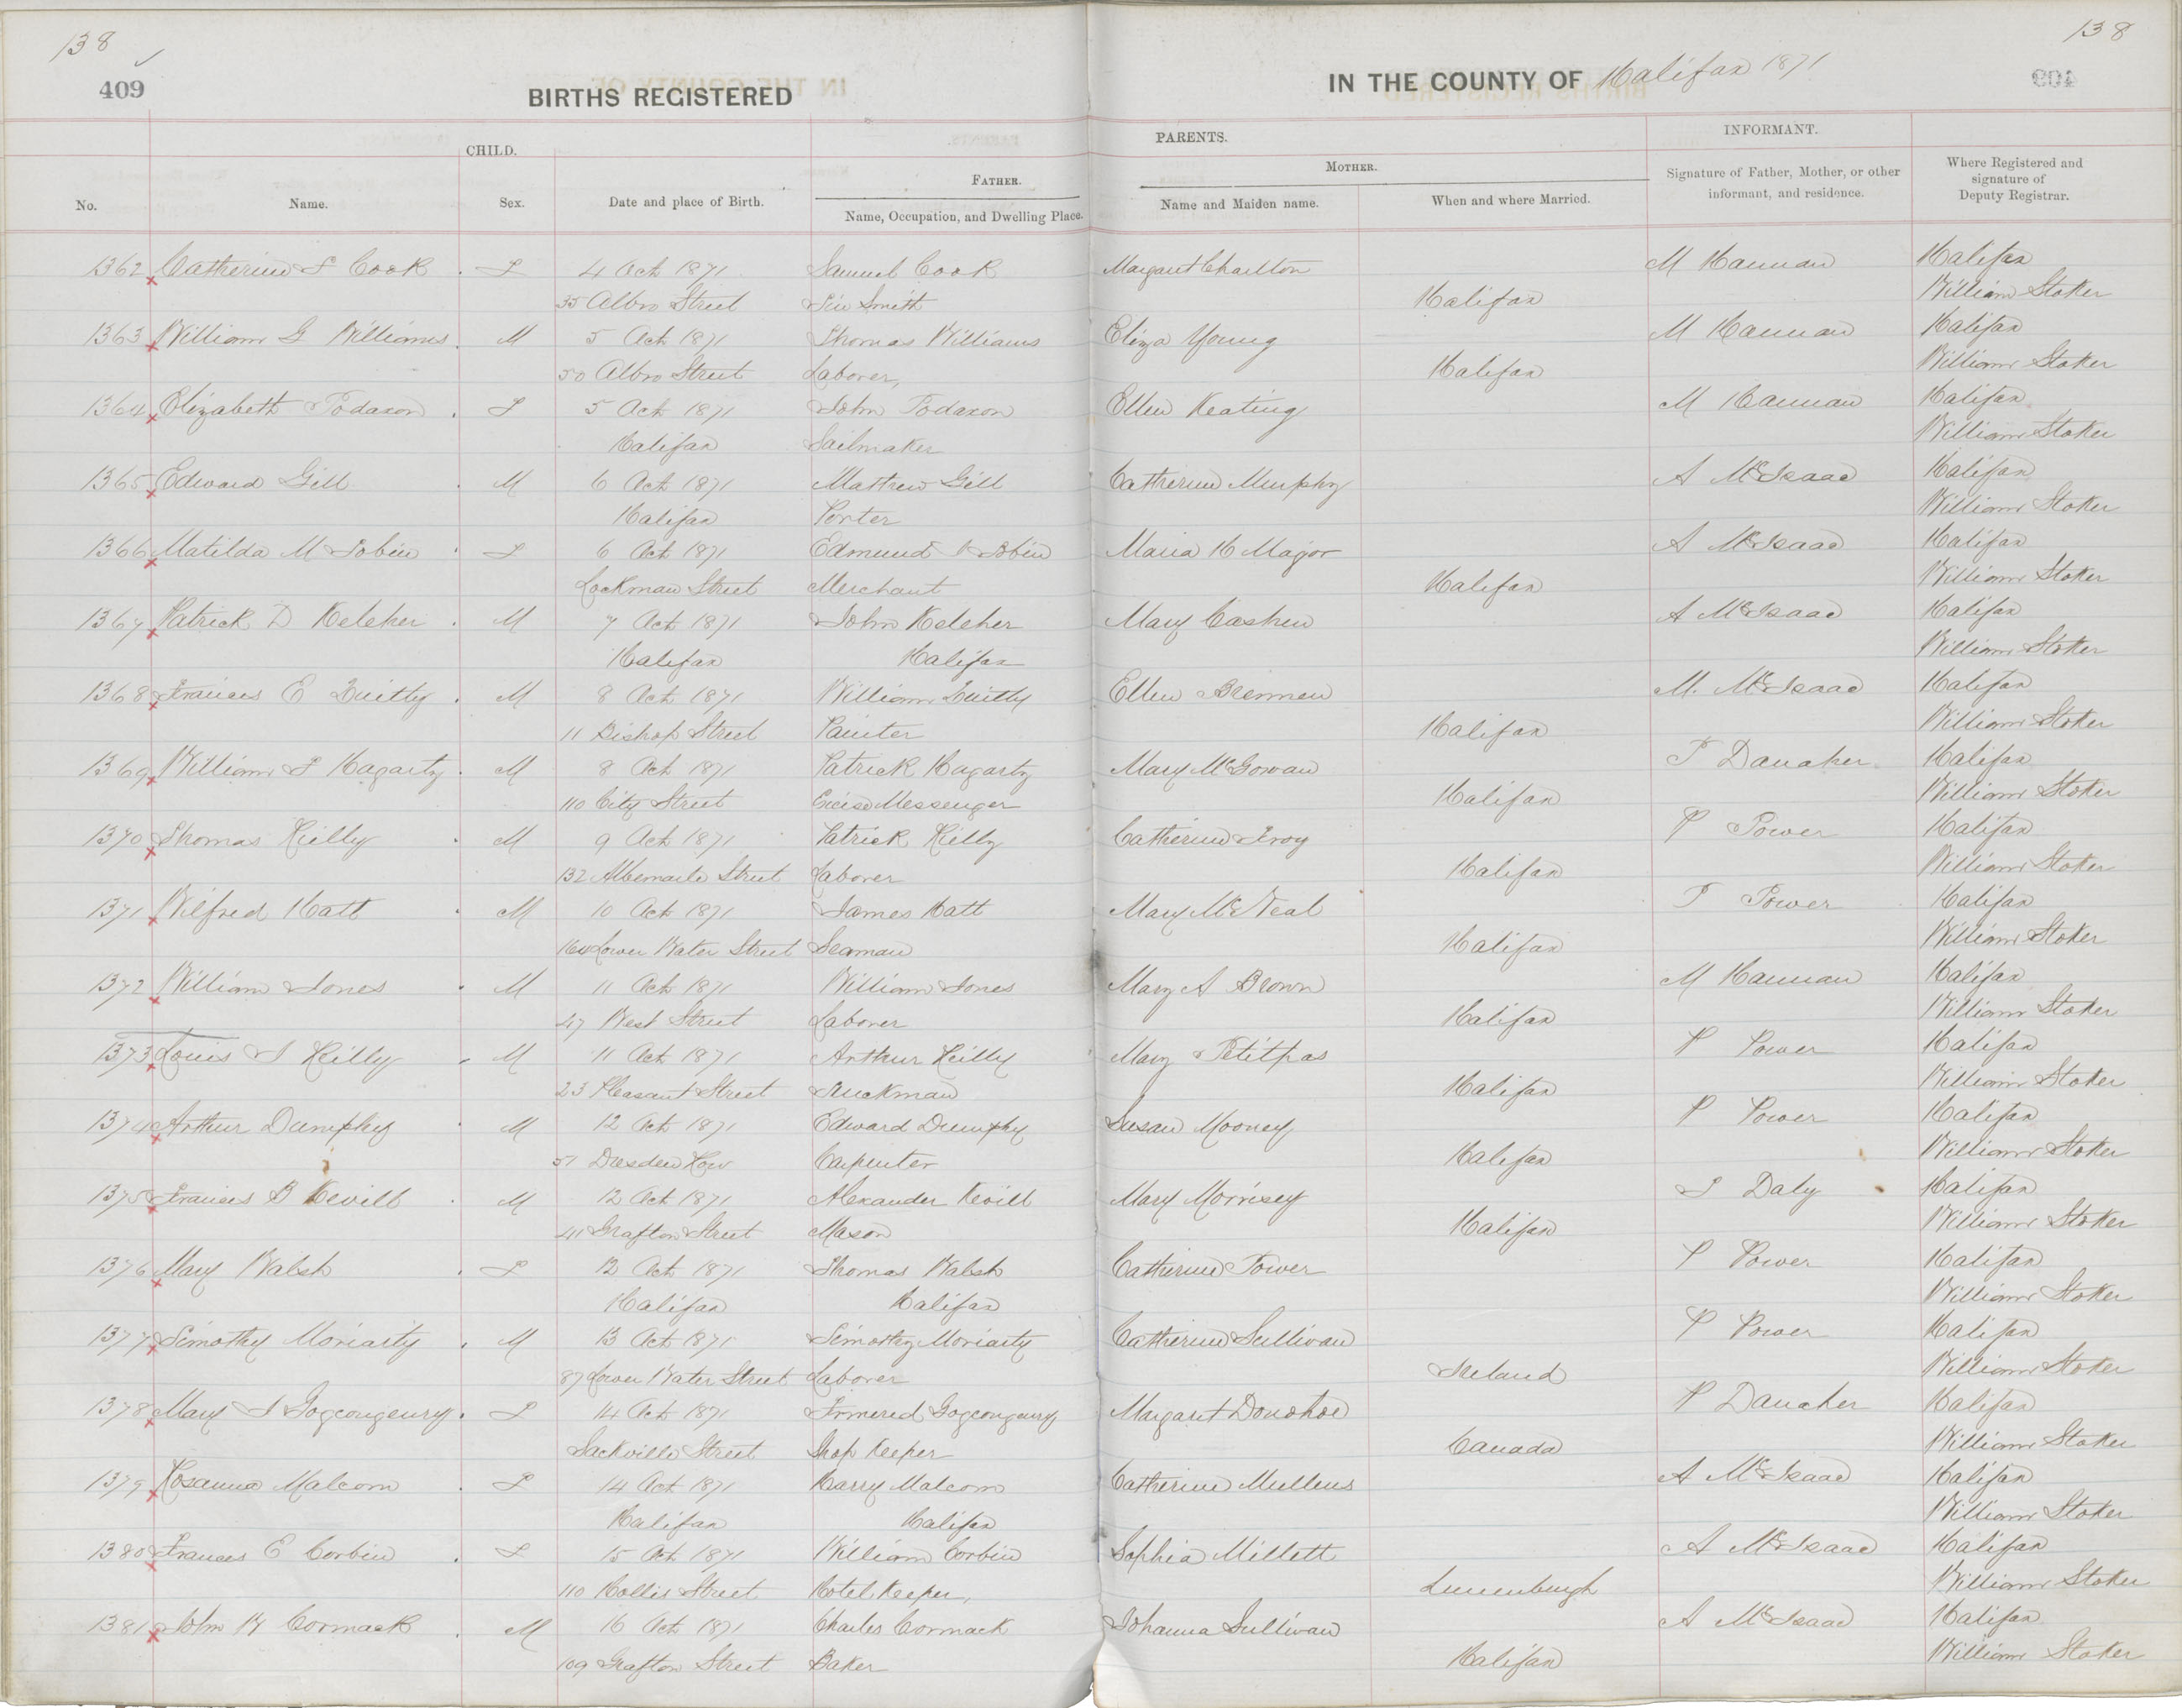 138
138
409
BIRTHS REGISTERED
IN THE COUNTY OF Halifax 1871
CHILD.
PARENTS.
INFORMANT.
No.
Name.
Sex.
Date and place of Birth.
FATHER.
Name, Occupation, and Dwelling Place.
MOTHER.
Name and Maiden name.
When and where Married.
Signature of Father, Mother, or other
informant, and residence.
Where Registered and
signature of
Deputy Registrar.
1362 Catherine F Cook F 4 Oct 1871 Samuel Cook Margaret Charlton M Hannan Halifax
35 Albro Street Tin Smith Halifax William Stoker
1363 William G Williams M 5 Oct 1871 Thomas Williams Eliza Young M Hannan Halifax
50 Albro Street Laborer, Halifax William Stoker
1364 Elizabeth F 5 Oct 1871 John Ellen Keating M Hannan Halifax
Halifax Sailmaker William Stoker
1365 Edward Gill M 6 Oct 1871 Mathew Gill Catherine Murphy A McIsaac Halifax
Halifax Porter William Stoker
1366 Matilda M Tobin F 6 Oct 1871 Edmund Tobin Maria H Major A McIsaac Halifax
Lockman Street Merchant Halifax William Stoker
1367 Patrick D Keleher M 7 Oct 1871 John Keleher Mary Cashen A McIsaac Halifax
Halifax Halifax William Stoker
1368 Frances E M 8 Oct 1871 William Ellen Brennen M. McIsaac Halifax
11 Bishop Street Painter Halifax William Stoker
1369 William F Hagarty M 8 Oct 1871 Patrick Hagarty Mary McGowan P Danaher Halifax
110 City Street Excise Messenger Halifax William Stoker
1370 Thomas Reilly M 9 Oct 1871 Patrick Reilly Catherine P Power Halifax
132 Albemarle Street Laborer Halifax William Stoker
1371 Wilfred Hatt M 10 Oct 1871 James Hatt Mary McNeal P Power Halifax
164 Lower Water Street Seaman Halifax William Stoker
1372 William Jones M 11 Oct 1871 William Jones Mary A Brown M Hannan Halifax
47 West Street Laborer Halifax William Stoker
1373 Louis J Reilly M 11 Oct 1871 Arthur Reilly Mary Petitpas P Power Halifax
23 Pleasant Street Truckman Halifax William Stoker
1374 Arthur Dumphy M 12 Oct 1871 Edward Dumphy Susan Mooney P Power Halifax
51 Dresden Row Carpenter Halifax William Stoker
1375 Francis B Nevill M 12 Oct 1871 Alexander Nevill Mary Morrisey J Daly Halifax
41 Grafton Street Mason Halifax William Stoker
1376 Mary Walsh F 12 Oct 1871 Thomas Walsh Catherine Power P Power Halifax
Halifax Halifax William Stoker
1377 Timothy Moriarity M 13 Oct 1871 Timothy Moriarty Catherine Sullivan P Power Halifax
87 Lower Water Street Laborer Ireland William Stoker
1378 Mary J F 14 Oct 1871 Margaret Donohoe P Danaher Halifax
Sackville Street Shop Keeper Canada William Stoker
1379 Rosanna Malcom F 14 Oct 1871 Harry Malcom Catherine Mullens A McIsaac Halifax
Halifax Halifax William Stoker
1380 Frances E Corbin F 15 Oct 1871 William Corbin Sophia Millett A McIsaac Halifax
110 Hollis Street Hotel Keeper, Lunenburgh William Stoker
1381 John W Cormack M 16 Oct 1871 Charles Cormack Johanna Sullivan A McIsaac Halifax
109 Grafton Street Baker Halifax William Stoker